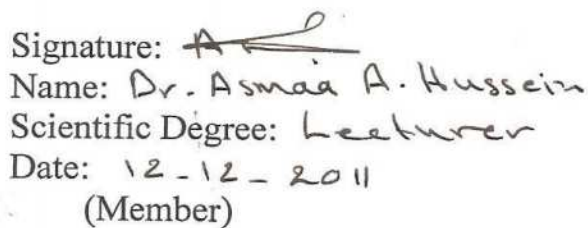 Signature:
Name: Dr. Asmaa A. Hussein
Scientific Degree: Lecturer
Date: 12-12-2011
(Member)